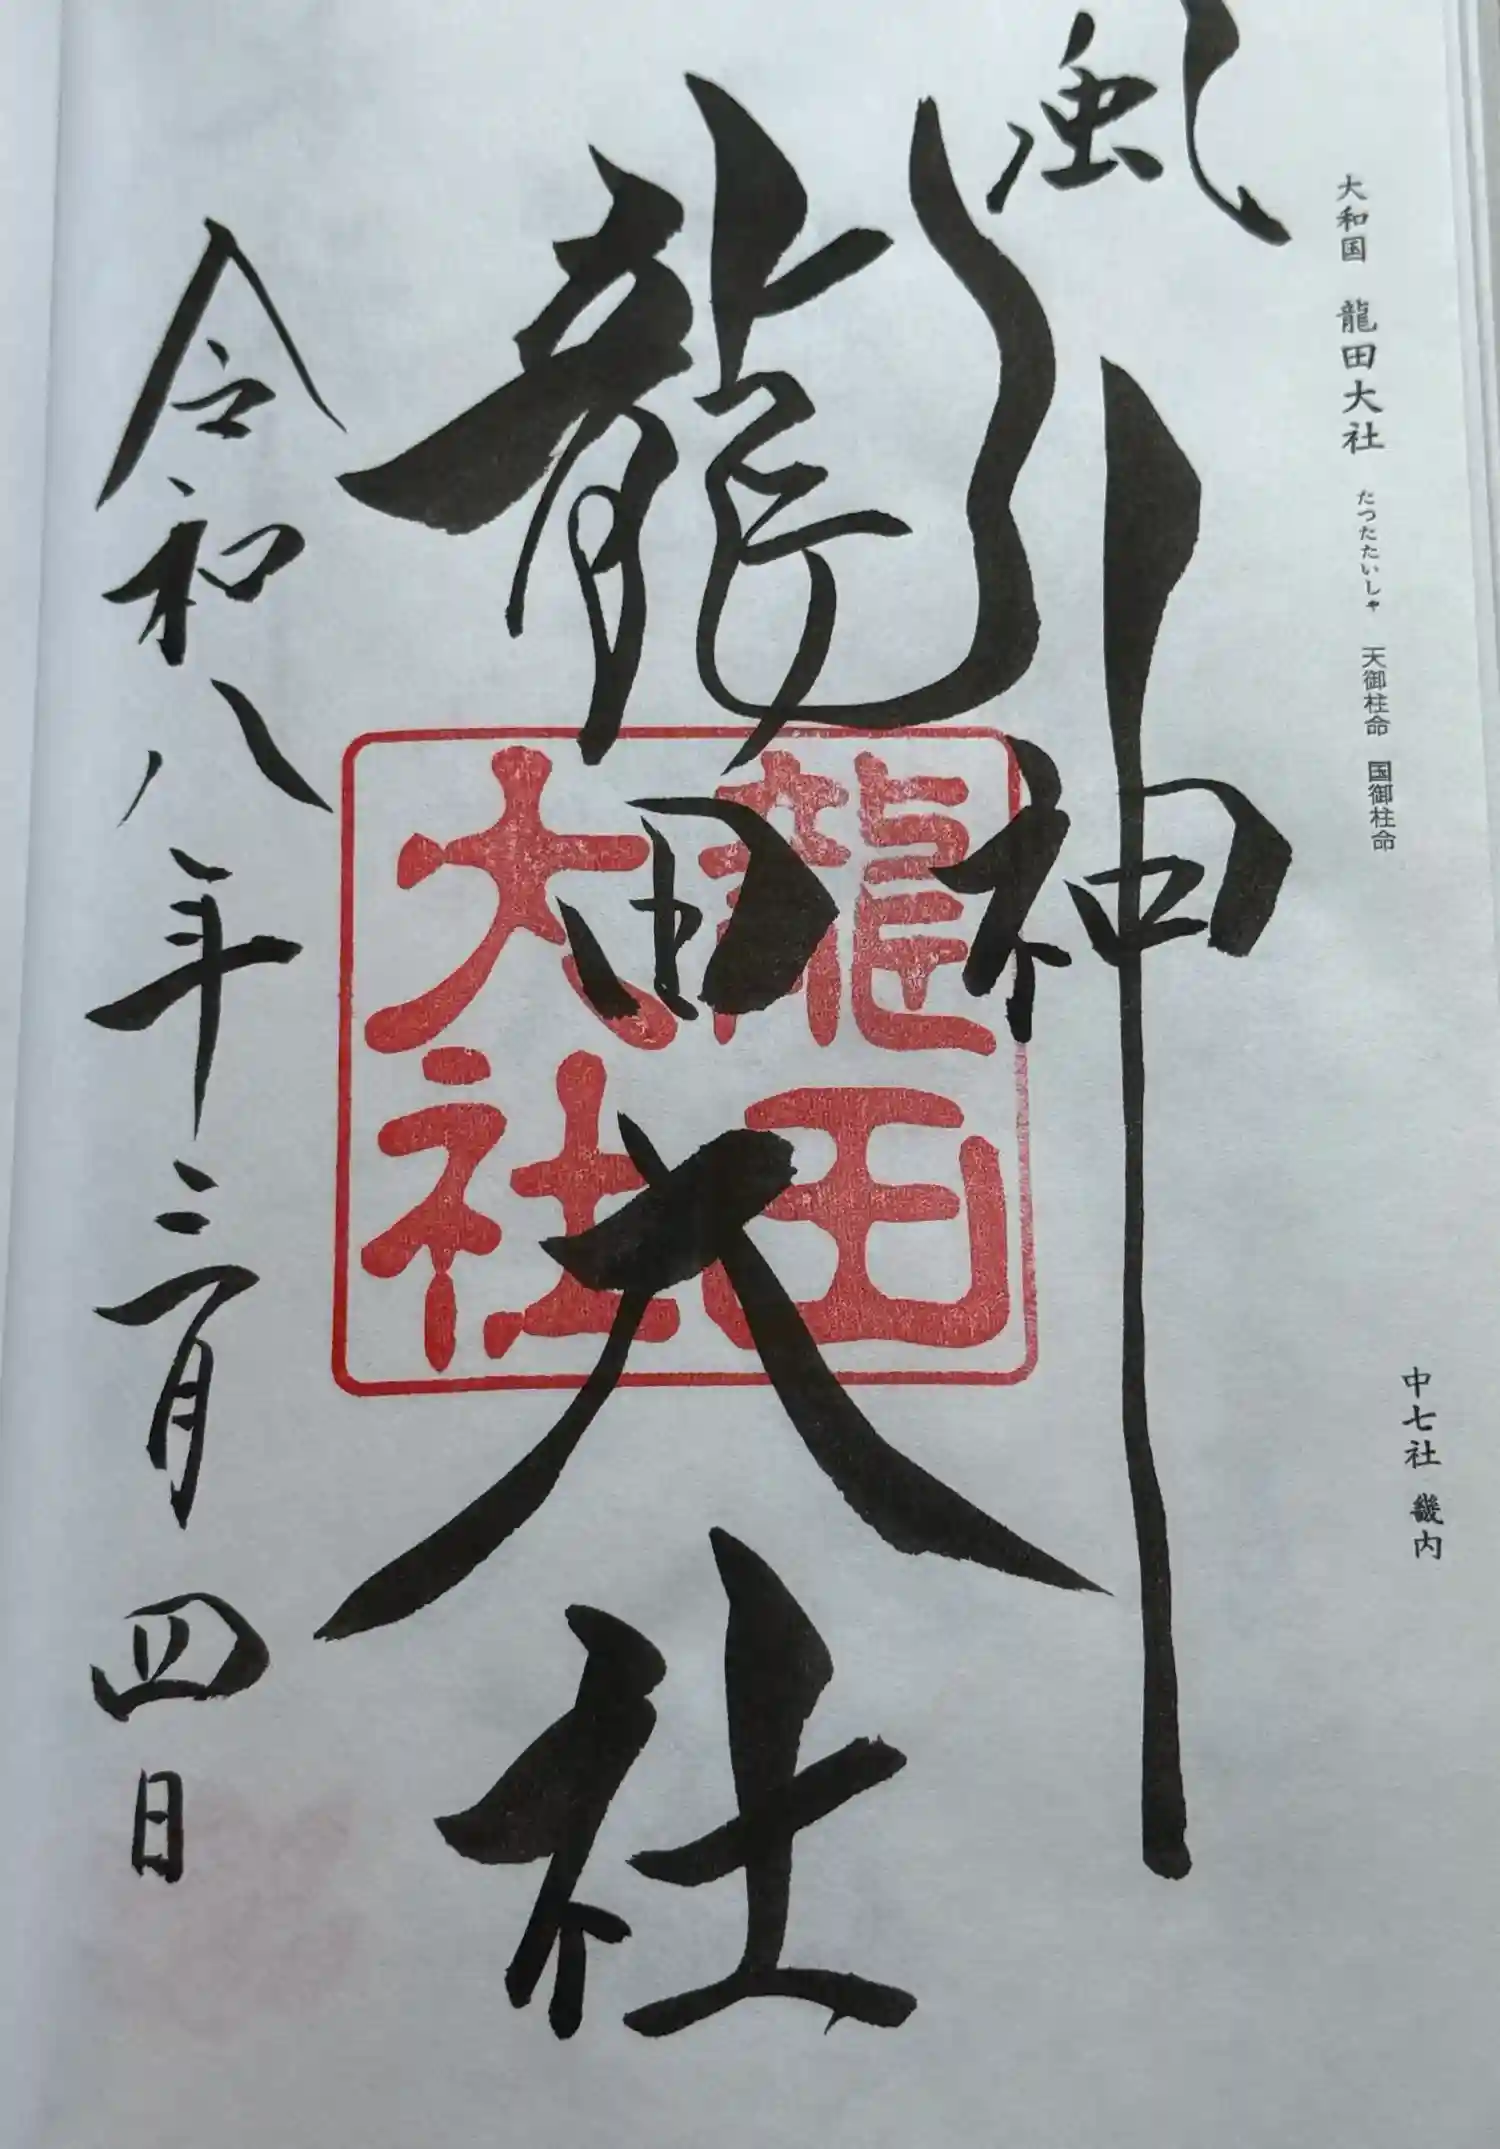 大和国 龍田大社 たつたたいしゃ 天御柱命 国御柱命
中七社 畿内
風神
龍田大社
龍田
大社
令和八年三月四日